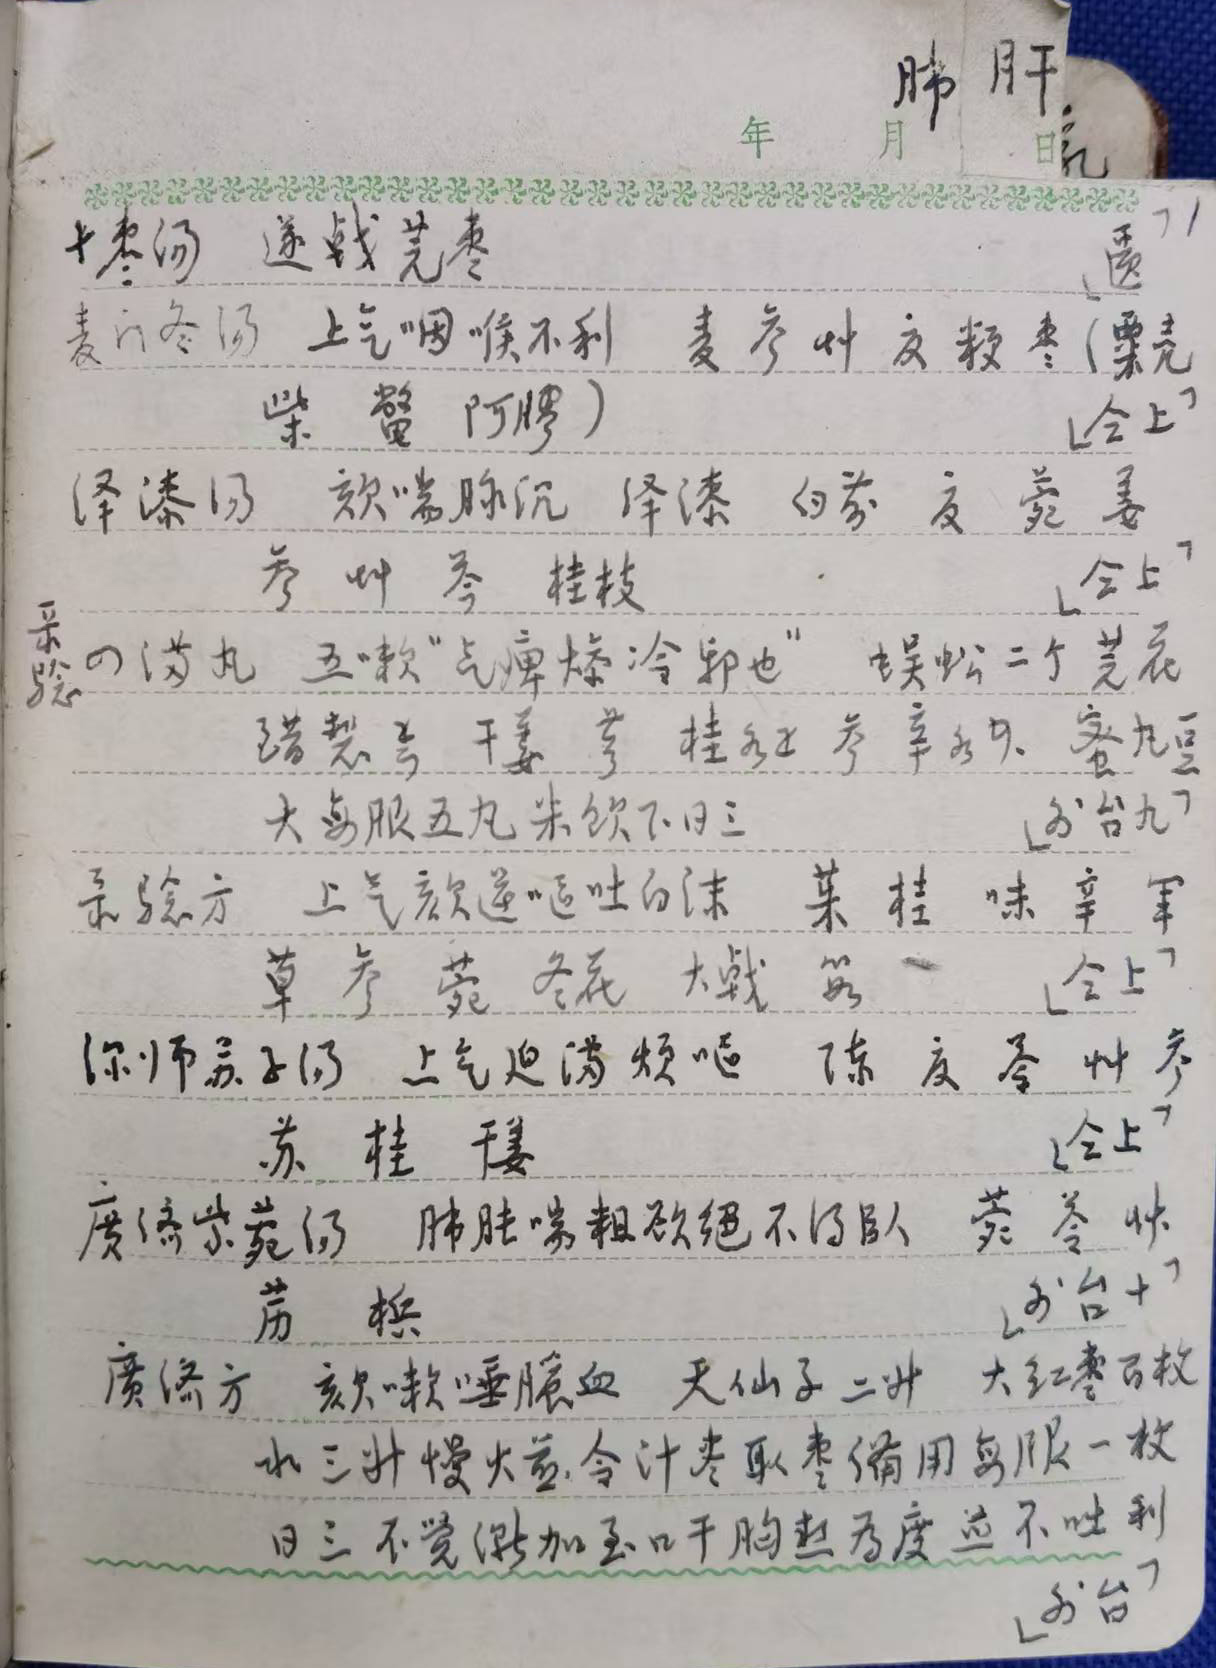 肺 肝
年 月 日
十枣汤 遂戟芫枣 「匮」
麦门冬汤 上气咽喉不利 麦参艸夏粳枣(粟壳
柴 鳖 阿胶) 「仝上」
泽漆汤 咳喘脉沉 泽漆 白前 夏 菀 姜
参 艸 芩 桂枝 「仝上」
四满丸 五嗽"气痹燥冷邪也" 蜈蚣二个 芫花
醋製 干姜 芎 桂 参 辛 蜜丸豆
大每服五丸米饮下日三 「外台九」
验方 上气咳逆呕吐白沫 菜 桂 味 辛 军
草 参 菀 冬花 大戟 「仝上」
深师苏子汤 上气迫满烦呕 陈 夏 苓 艸 参
苏 桂 干姜 「仝上」
廣济紫菀汤 肺胀喘粗欲絕不得臥 菀 苓
苈 槟 「外台十」
廣济方 咳嗽唾膿血 天仙子二升 大红枣百枚
水三升慢火 令汁枣取枣備用每服一枚
日三不觉漸加至口干胸热为度 並不吐利
「外台」